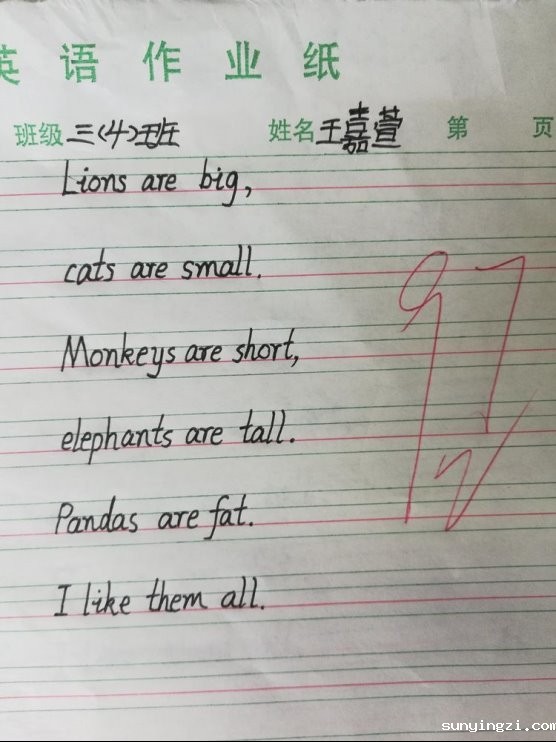 英语作业纸
班级 三(4)班 姓名 王嘉萱 第 页
Lions are big,
cats are small.
Monkeys are short,
elephants are tall.
Pandas are fat.
I like them all.
97
sunyingzi.com